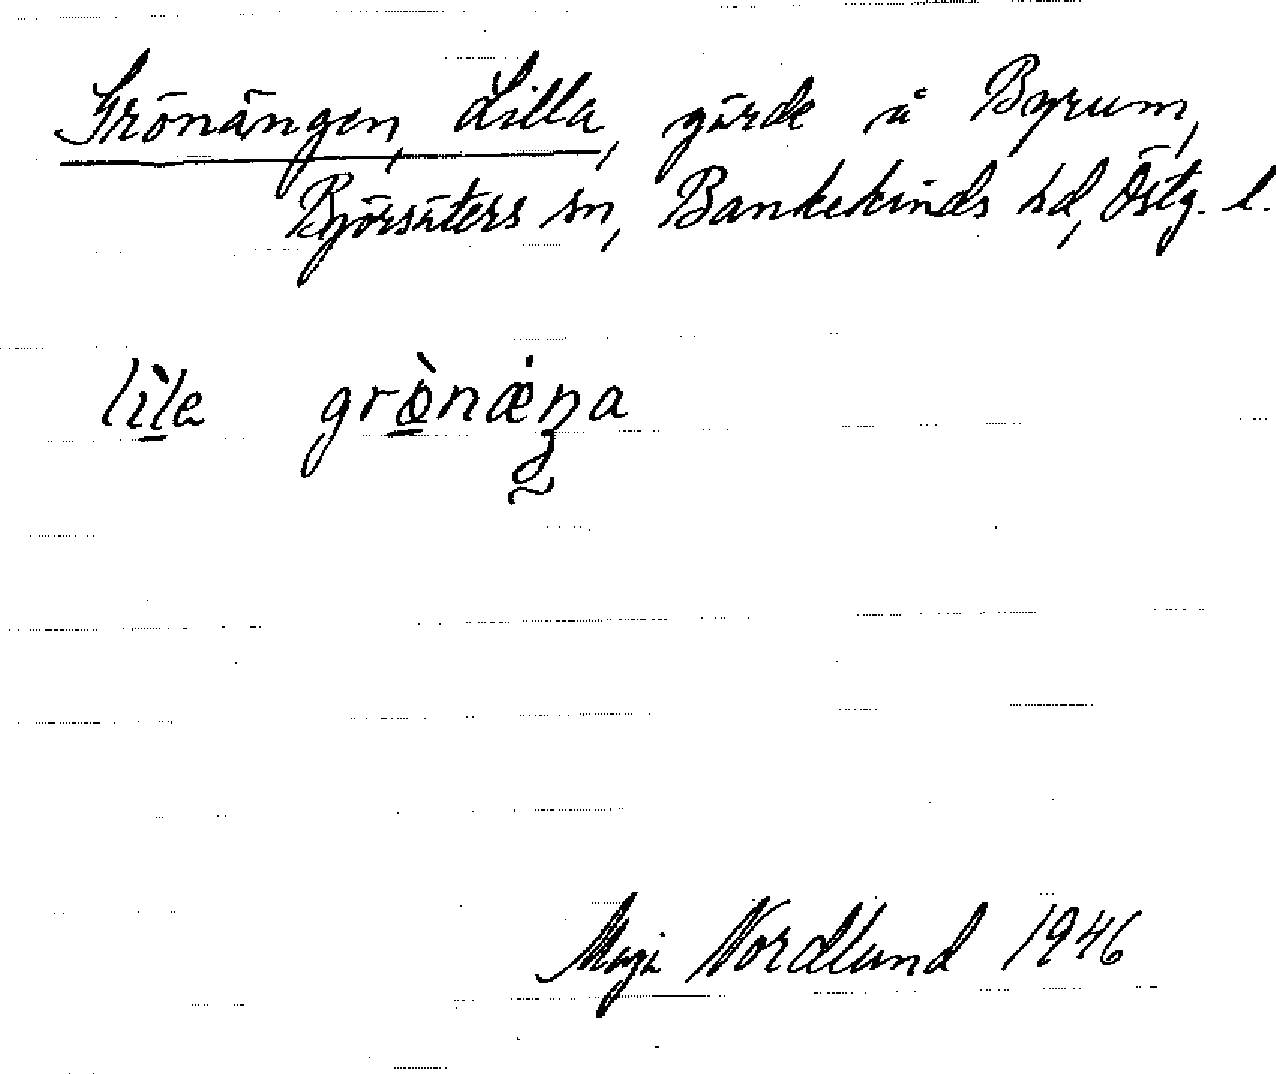 Grönängen, Lilla, gärde å Byrum,
Björsäters sn, Bankekinds hd, Östg. l.
lìle grø̀næ̇ŋa
2
Maja Nordlund 1946